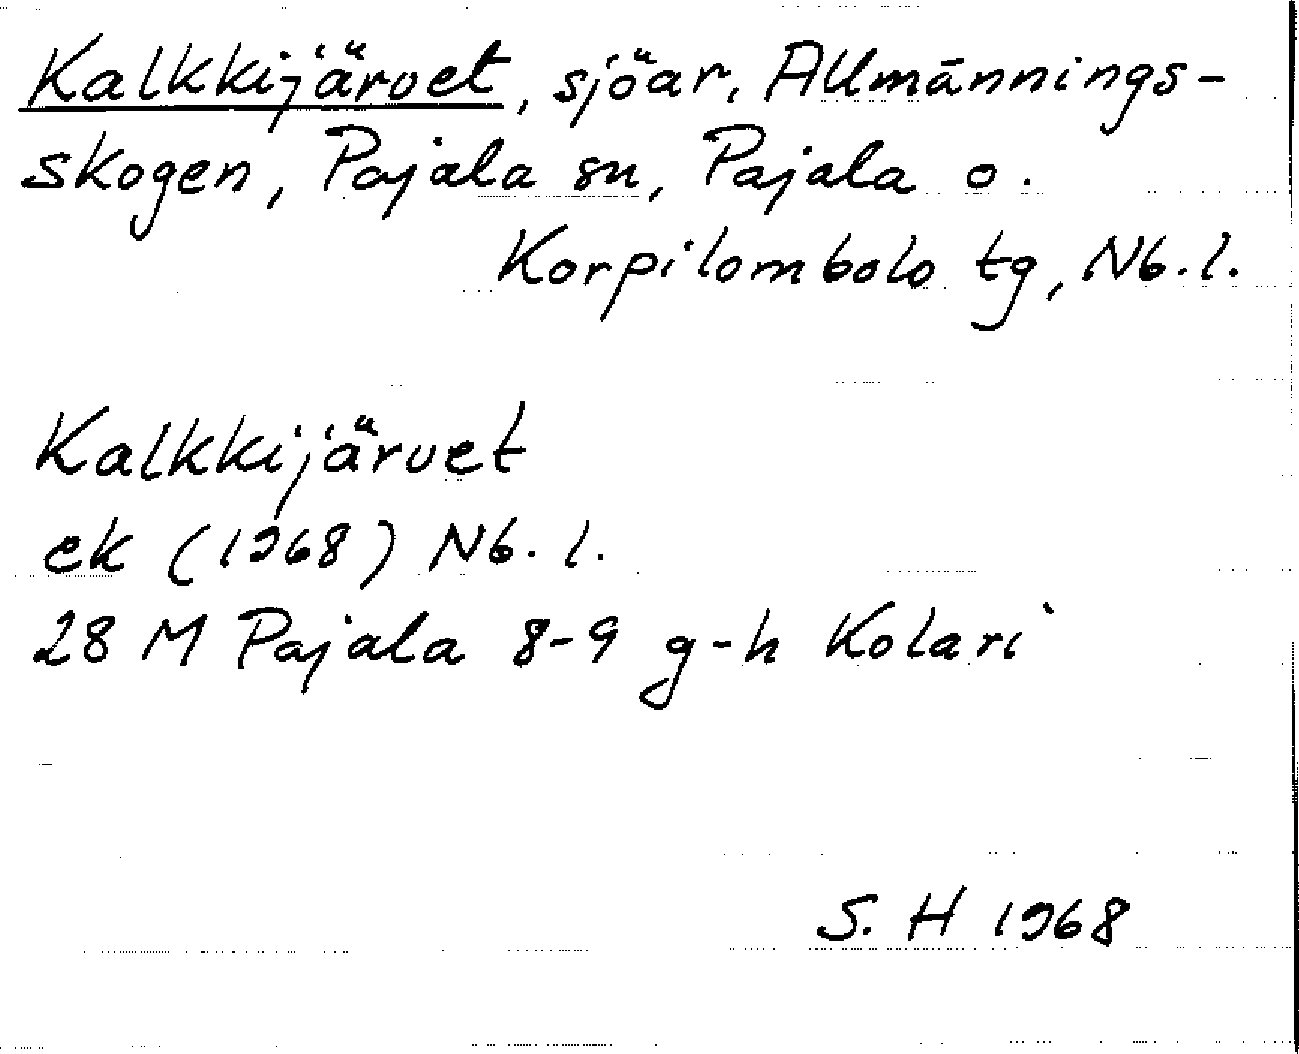 Kalkkijärvet, sjöar, Allmännings-
skogen, Pajala sn, Pajala o.
Korpilombolo tg, Nb.l.
Kalkkijärvet
ek (1968) Nb. l.
28 M Pajala 8-9 g-h Kolari
S. H 1968